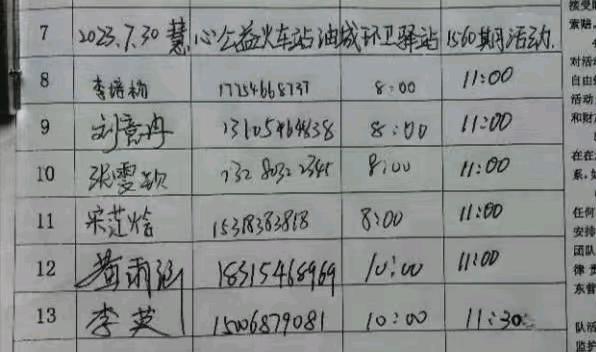 7 2023.7.30 慧心公益火车站油城环卫驿站1560期活动.
8 李培杨 17254668737 8:00 11:00
9 刘意冉 13105464838 8:00 11:00
10 张雯欣 132 8032 2345 8:00 11:00
11 宋范烩 15318383818 8:00 11:00
12 黄雨涵 18315468969 10:00 11:00
13 李英 15006879081 10:00 11:30
接受
索赔
对活
自由
活动
和财
在在
系,如
任何
安排
团队
律责
东营
队活
监护